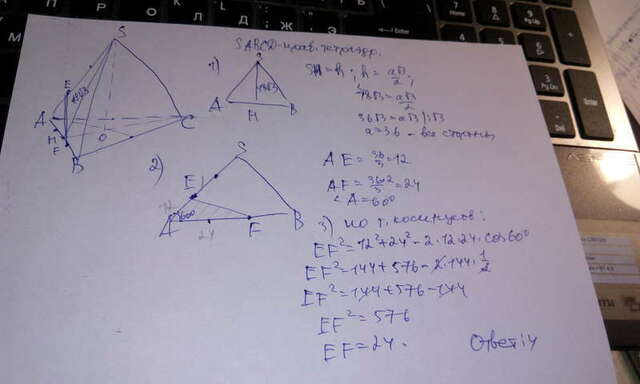 SABCD - прав. тетраэдр.
1)
SH = h; h = a√3/2;
18√3 = a√3/2
36√3 = a√3 | :√3
a = 36 - все стороны
S
E
18√3
A
M
F
O
B
C
A
H
B
2)
S
E
12
60°
A
24
F
B
AE = 36/3 = 12
AF = 36·2/3 = 24
∠A = 60°
3) по т. косинусов:
EF² = 12² + 24² - 2·12·24·cos60°
EF² = 144 + 576 - 2·144·1/2
EF² = 144 + 576 - 144
EF² = 576
EF = 24.
Ответ: 4